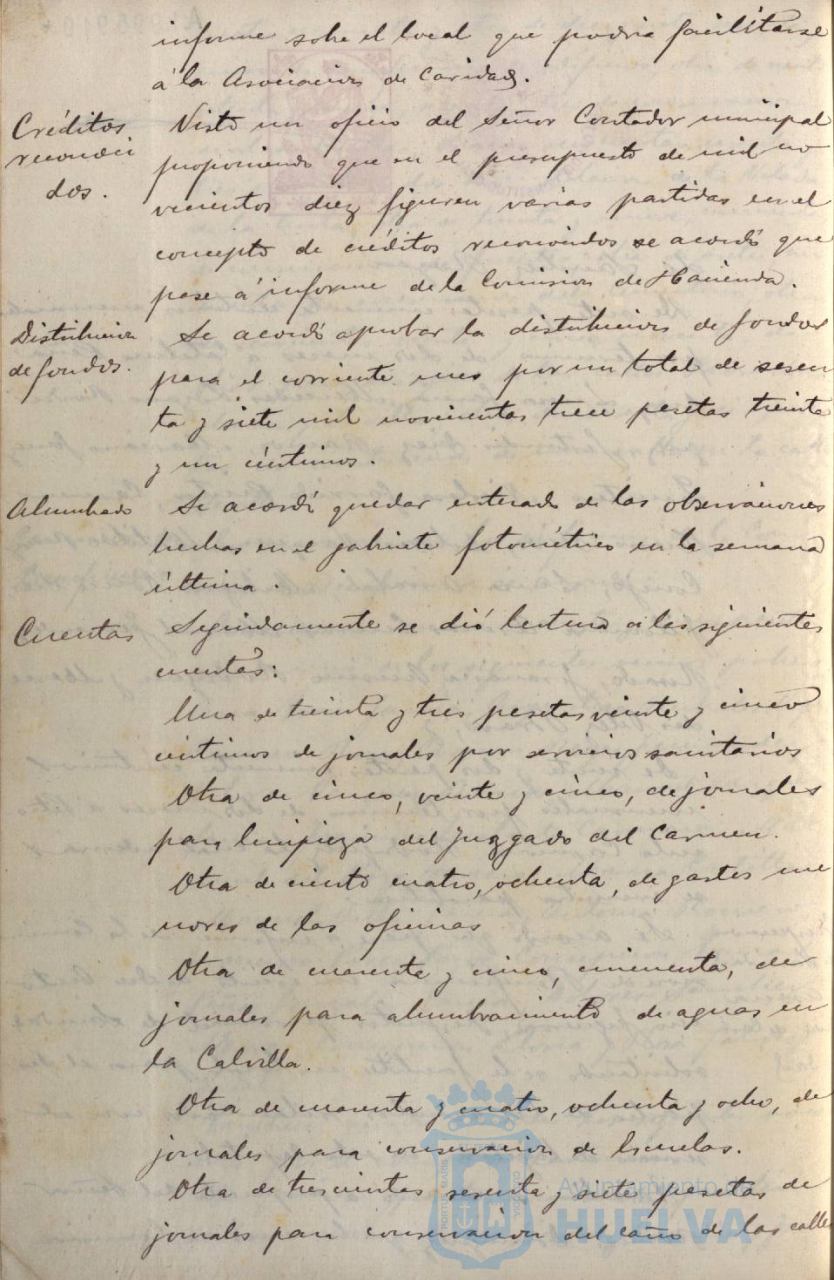 informe sobre el local que podria facilitarse
á la Asociacion de Caridad.
Créditos
reconoci
dos.
Visto un oficio del Señor Contador municipal
proponiendo que en el presupuesto de mil no
vecientos diez figuren varias partidas en el
concepto de créditos reconocidos se acordó que
pase á informe de la Comision de Hacienda.
Distribucion
de fondos.
Se acordó aprobar la distribucion de fondos
para el corriente mes por un total de sesen
ta y siete mil novecientas trece pesetas treinta
y un céntimos.
Alumbrado
Se acordó quedar enterado de las observaciones
hechas en el gabinete fotométrico en la semana
última.
Cuentas
Seguidamente se dió lectura á las siguientes
cuentas:
Una de treinta y tres pesetas veinte y cinco
céntimos de jornales por servicios sanitarios
Otra de cinco, veinte y cinco, de jornales
para limpieza del Juzgado del Carmen.
Otra de ciento cuatro, ochenta, de gastos me
nores de las oficinas
Otra de cuarenta y cinco, cincuenta, de
jornales para alumbramiento de aguas en
la Calvilla.
Otra de cuarenta y cuatro, ochenta y ocho, de
jornales para conservacion de Escuelas.
Otra de trescientas sesenta y siete pesetas de
jornales para conservacion del caño de las calles
Ayuntamiento de
HUELVA